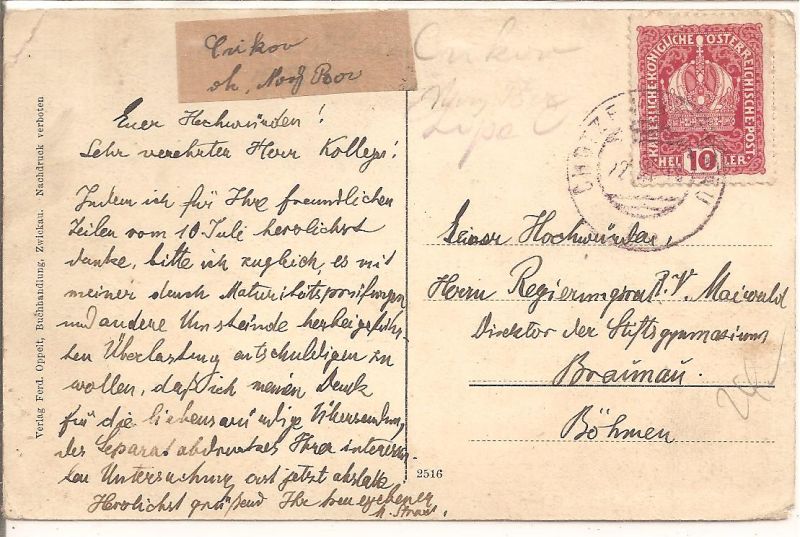 Cvikov
ok. Nový Bor
Cvikov
Nový Bor
Lípa
KAISERLICHE KÖNIGLICHE ÖSTERREICHISCHE POST
HELLER 10
Verlag Ferd. Oppelt, Buchhandlung, Zwickau. Nachdruck verboten
Euer Hochwürden!
Sehr verehrter Herr Kollege!
Indem ich für Ihre freundlichen
Zeilen vom 10 Juli herzlichst
danke, bitte ich zugleich, es mit
meiner durch Maturitätsprüfungen
und andere Umstände herbeigeführ-
ten Überlastung entschuldigen zu
wollen, daß ich meinen Dank
für die liebenswürdige Übersendung
des Separatabdruckes Ihrer interessan-
ten Untersuchung erst jetzt abstatte.
Herzlichst grüßend Ihr treu ergebener
Seiner Hochwürden,
Herrn Regierungsrat P. V. Maiwald
Direktor des Stiftsgymnasiums
Braunau.
Böhmen
2516